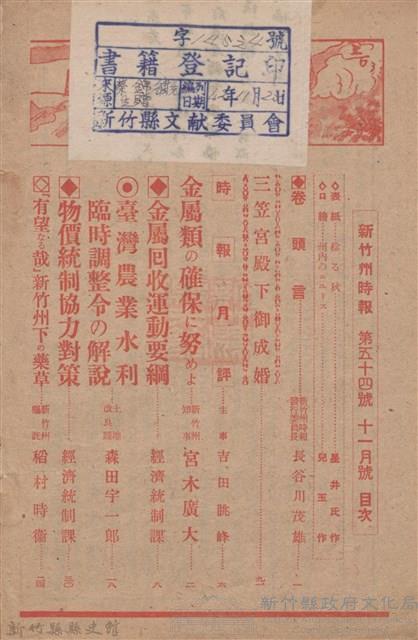 字 號
書籍登記印
來源
編列日期
年11月2 日
新竹縣文献委員會
新竹州時報 第五十四號 十一月號 目次
◇表紙 稔る秋 星井氏作
◇口繪 州內のニユース 兒玉作
◆卷頭言 新竹州時報發行委員長 長谷川茂雄 一
三笠宮殿下御成婚
時報 月評 主事 吉田眺峰 六
金屬類の確保に努めよ 新竹州知事 宮木廣大 二
◆金屬回收運動要綱 經濟統制課 八
◉臺灣農業水利臨時調整令の解說 土地改良課 森田宇一郎 一八
◆物價統制協力對策 經濟統制課 三〇
◇「有望なる哉」新竹州下の藥草 新竹州囑託 稻村時衞 四
新竹縣政府文化局
新竹縣縣史館